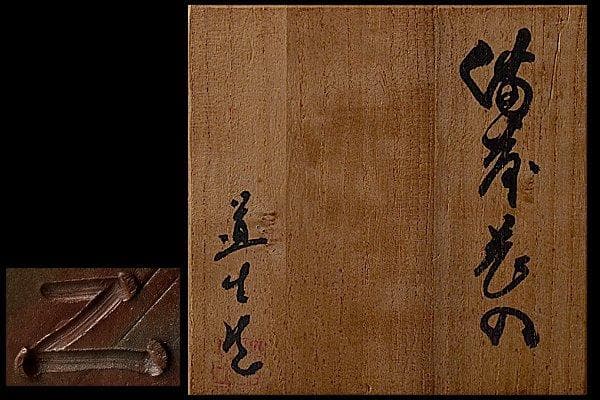 備前花入
道生造